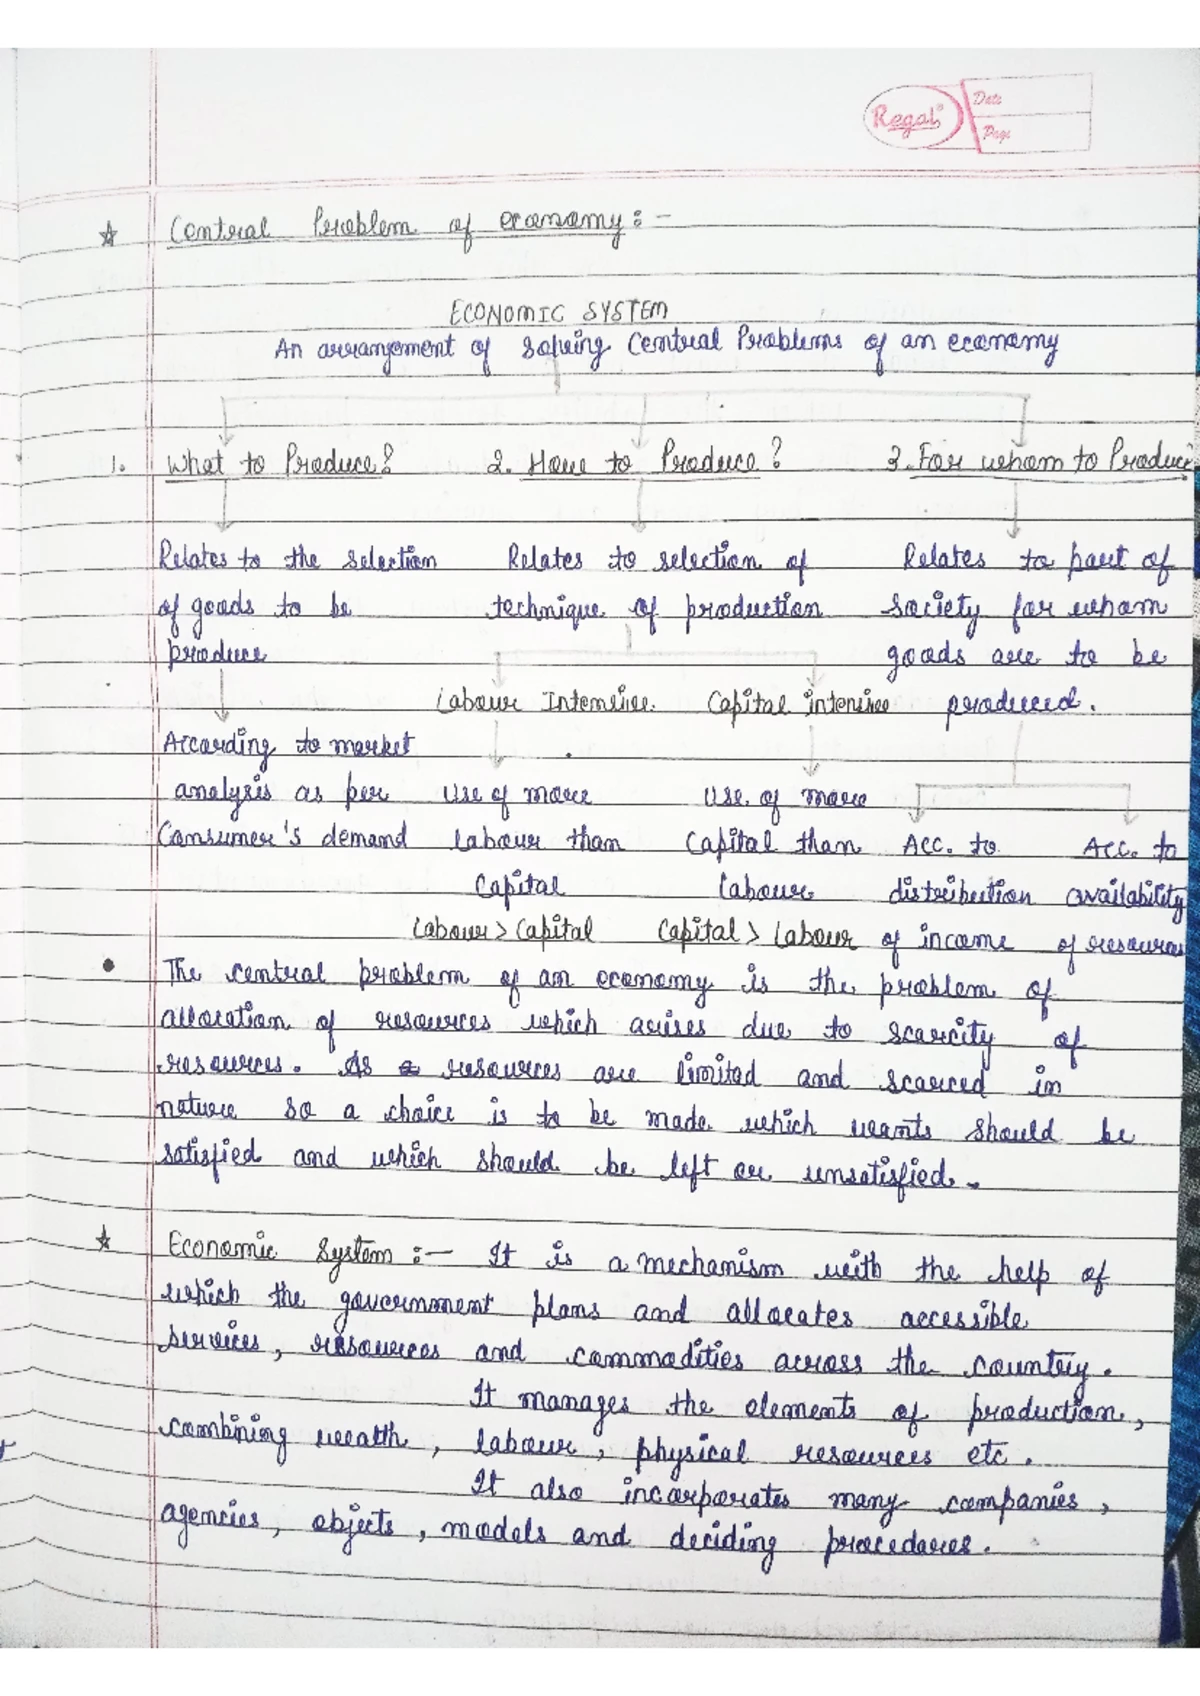 Regal®
Date
Page
☆ Central Problem of economy :-
ECONOMIC SYSTEM
An arrangement of solving Central Problems of an economy
1. What to Produce?
2. How to Produce?
3. For whom to Produce?
Relates to the selection
of goods to be
produce
According to market
analysis as per
Consumer's demand
Relates to selection of
technique of production
Labour Intensive.
Use of more
Labour than
Capital
Labour > Capital
Capital intensive
Use of more
Capital than
Labour
Capital > Labour
Relates to part of
society for whom
goods are to be
produced.
Acc. to
distribution
of income
Acc. to
availability
of resources
• The central problem of an economy is the problem of
allocation of resources which arises due to scarcity of
resources. As resources are limited and scarced in
nature so a choice is to be made which wants should be
satisfied and which should be left or unsatisfied.
☆ Economic System :- It is a mechanism with the help of
which the government plans and allocates accessible
services, resources and commodities across the country.
It manages the elements of production,
combining wealth, labour, physical resources etc.
It also incorporates many companies,
agencies, objects, models and deciding procedures.